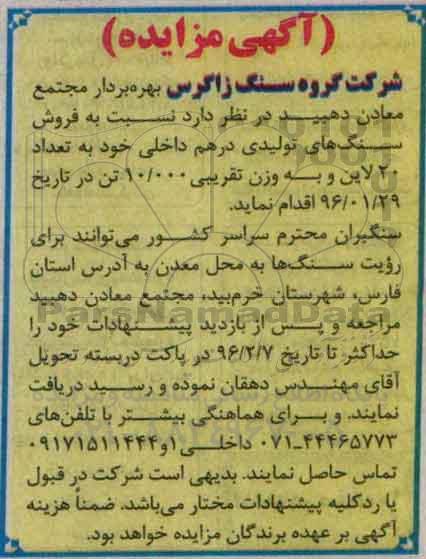 (آگهی مزایده)
شرکت گروه سنگ زاگرس بهره‌بردار مجتمع
معادن دهبید در نظر دارد نسبت به فروش
سنگ‌های تولیدی درهم داخلی خود به تعداد
۲۰ لاین و به وزن تقریبی ۱۰/۰۰۰ تن در تاریخ
۹۶/۰۱/۲۹ اقدام نماید.
سنگبران محترم سراسر کشور می‌توانند برای
رؤیت سنگ‌ها به محل معدن به آدرس استان
فارس، شهرستان خرم‌بید، مجتمع معادن دهبید
مراجعه و پس از بازدید پیشنهادات خود را
حداکثر تا تاریخ ۹۶/۲/۷ در پاکت دربسته تحویل
آقای مهندس دهقان نموده و رسید دریافت
نمایند. و برای هماهنگی بیشتر با تلفن‌های
۰۷۱-۴۴۴۶۵۷۷۳ داخلی ۱ و ۰۹۱۷۱۵۱۱۴۴۴
تماس حاصل نمایند. بدیهی است شرکت در قبول
یا رد کلیه پیشنهادات مختار می‌باشد. ضمناً هزینه
آگهی بر عهده برندگان مزایده خواهد بود.
ParsNamadData